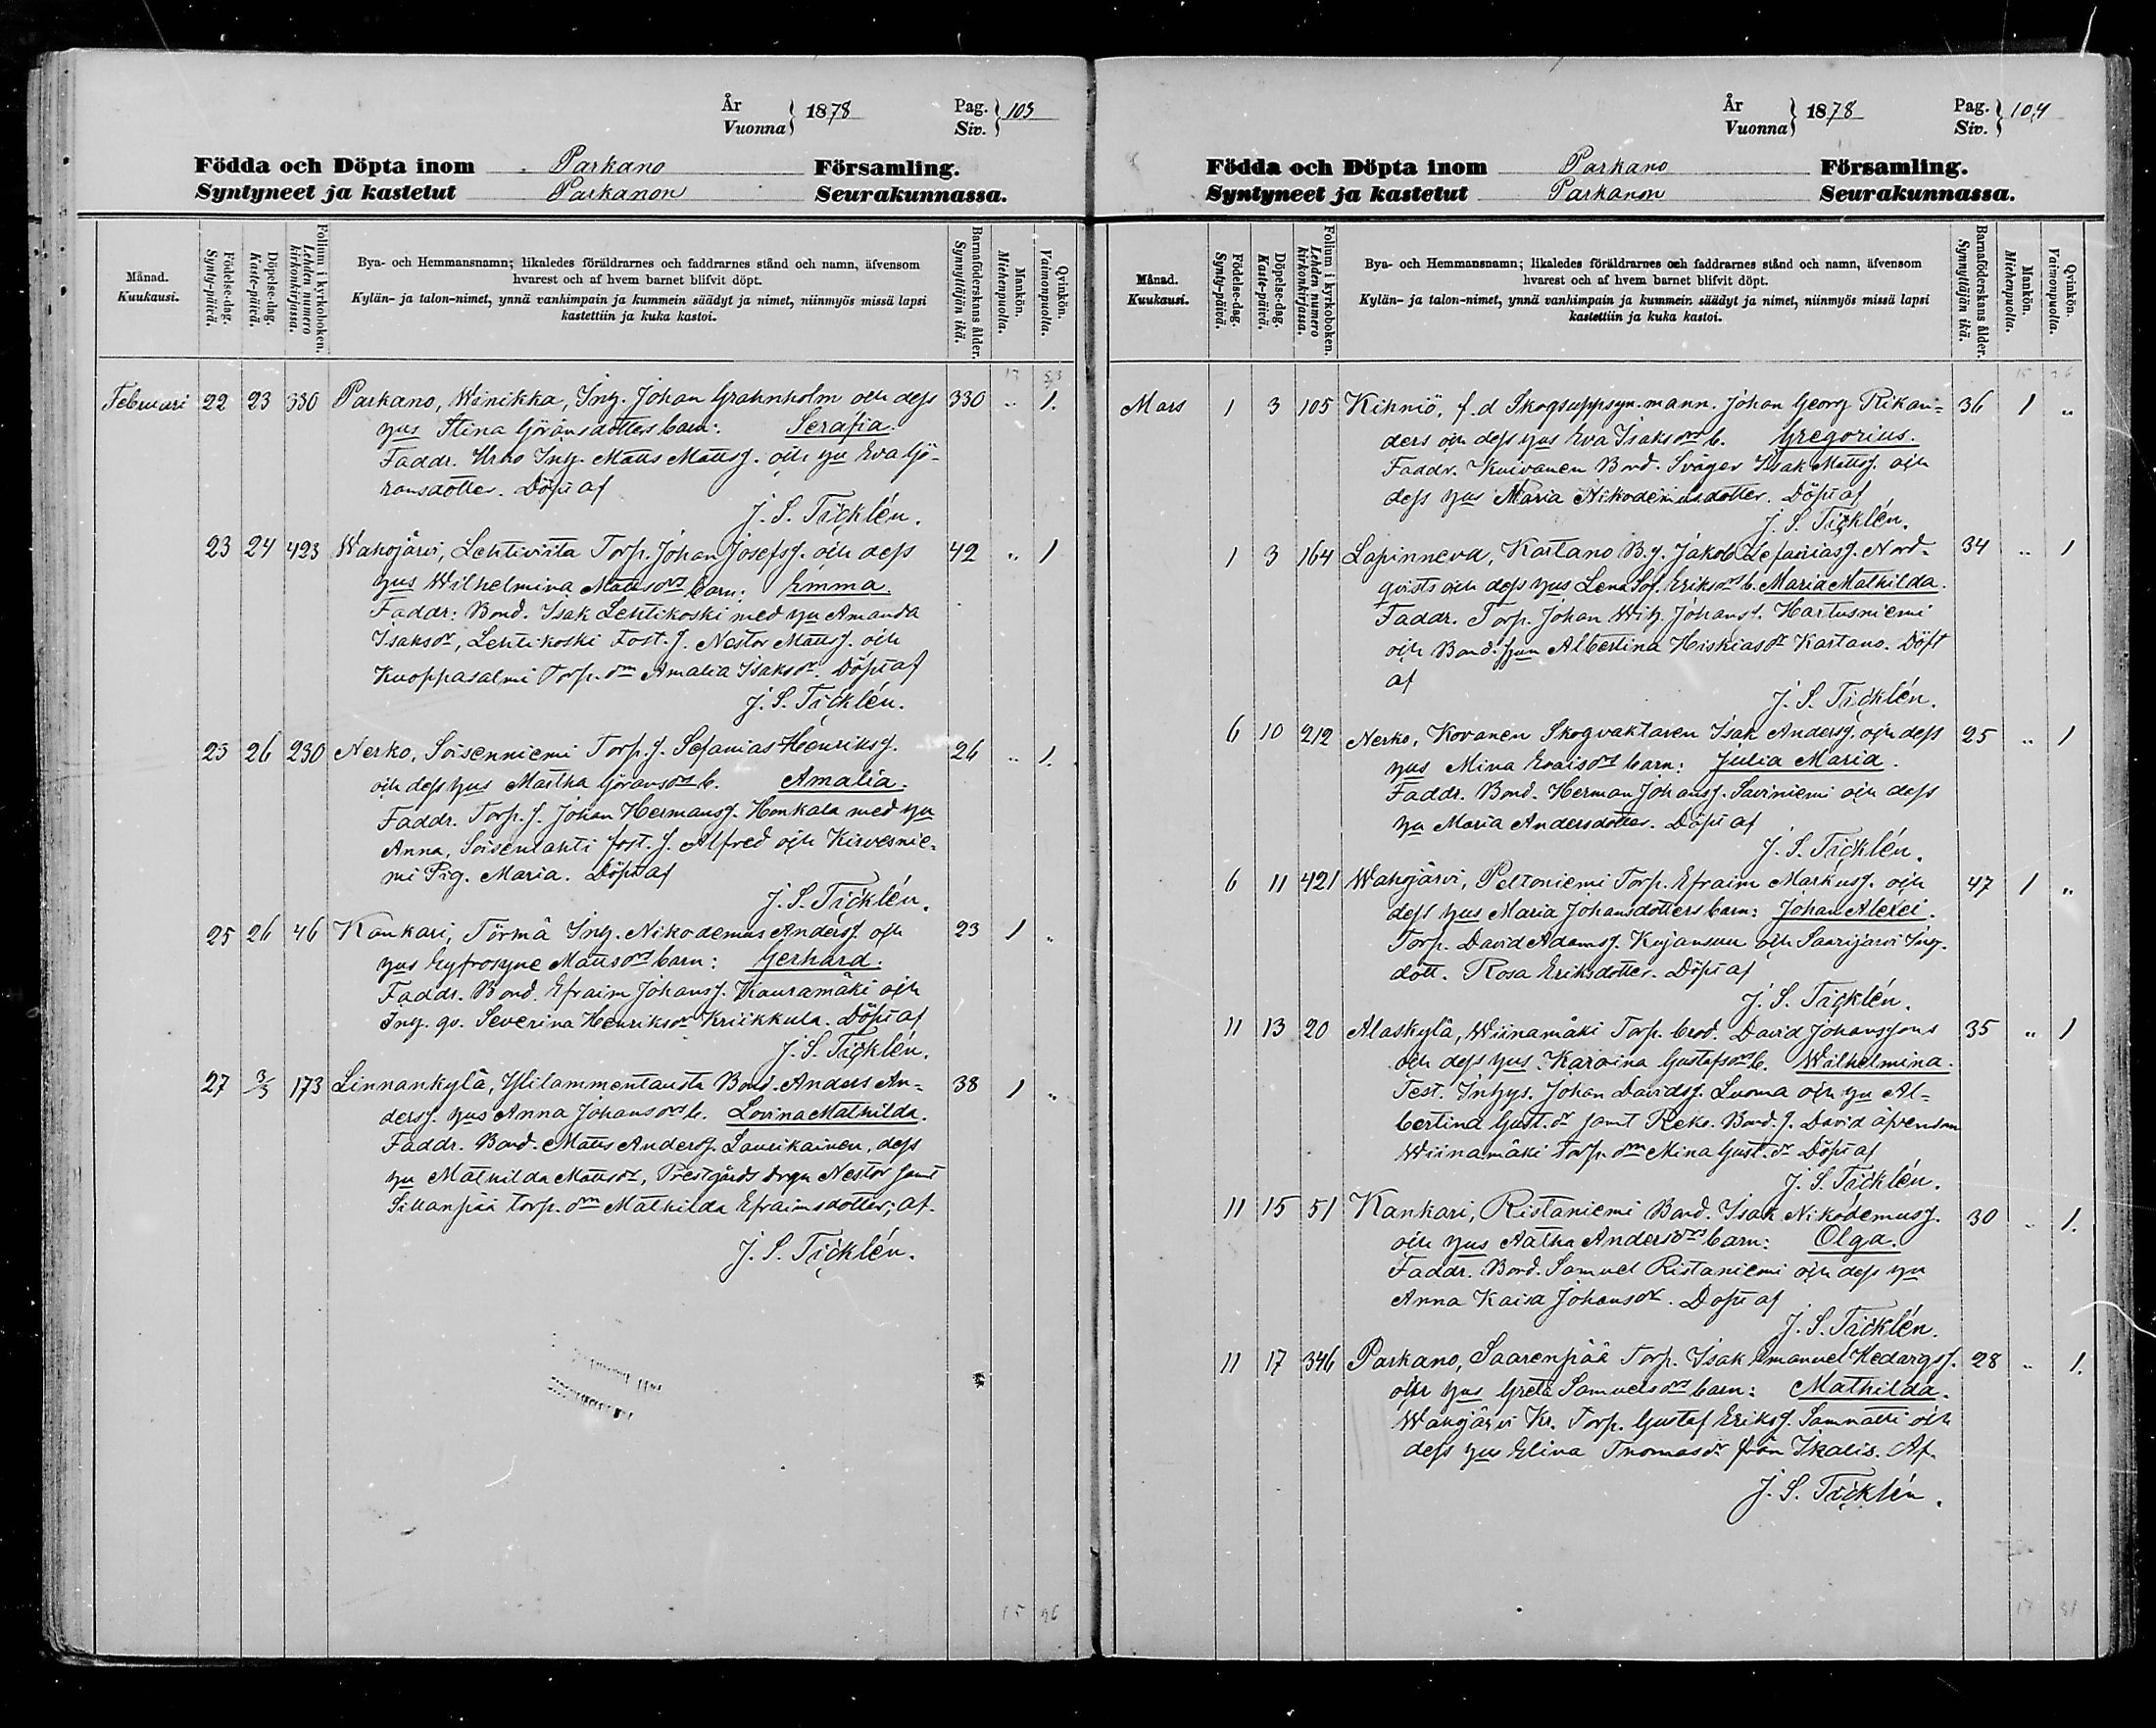 År
Vuonna } 1878 Pag.
Siv. } 103
Födda och Döpta inom Parkano Församling.
Syntyneet ja kastetut Parkanon Seurakunnassa.
Månad.
Kuukausi.
Födelse-dag.
Synty-päivä.
Döpelse-dag.
Kaste-päivä.
Folium i kyrkoboken.
Lehden numero
kirkonkirjassa.
Bya- och Hemmansnamn; likaledes föräldrarnes och faddrarnes stånd och namn, äfvensom
hvarest och af hvem barnet blifvit döpt.
Kylän- ja talon-nimet, ynnä vanhimpain ja kummein säädyt ja nimet, niinmyös missä lapsi
kastettiin ja kuka kastoi.
Barnaföderskans ålder.
Synnyttäjän ikä.
Mankön.
Miehenpuolla.
Qvinkön.
Vaimonpuolla.
Februari 22 23 330 Parkano, Winikka, Ing. Johan Grahnholm och dess 330 „ 1.
hus Stina Göransdotters barn: Serafia.
Faddr. Urho Ing. Matts Mattss. och hu Eva Gö-
ransdotter. Döpt af
J. S. Täcklén.
23 24 423 Wahojärvi, Lehtivirta Torp. Johan Josefss. och dess 42 „ 1
hus Wilhelmina Mattsdrs barn: Emma.
Faddr: Bond. Isak Lehtikoski med hu Amanda
Isaksdr, Lehtikoski Fost. s. Nestor Mattss. och
Kuoppasalmi Torp. drn Amalia Isaksdr. Döpt af
J. S. Täcklén.
23 26 230 Nerko, Soisenniemi Torp. s. Sefanias Henrikss. 26 „ 1.
och dess hus Martha Göransdrs b. Amalia.
Faddr. Torp. s. Johan Hermanss. Honkala med hu
Anna, Soisenlahti fost. s. Alfred och Kirvesnie-
mi Pig. Maria. Döpt af
J. S. Täcklén.
25 26 46 Kankari, Törmä Ing. Nikodemus Anderss. och 23 1 „
hus Eyfrosyne Mattsdrs barn: Gerhard.
Faddr. Bond. Efraim Johanss. Kauramäki och
Ing. qv. Severina Henriksdr Kriikkula. Döpt af
J. S. Täcklén.
27 3/3 173 Linnankylä, Ylilammentausta Bond. Anders An- 38 1 „
derss. hus Anna Johansdrs b. Lovina Mathilda.
Faddr. Bond. Matts Anderss. Laurikainen, dess
hu Mathilda Mattsdr, Prestgårds drgn Nestor samt
Sillanpää torp. drn Mathilda Efraimsdotter; af.
J. S. Täcklén.
År
Vuonna } 1878 Pag.
Siv. } 104
Födda och Döpta inom Parkano Församling.
Syntyneet ja kastetut Parkanon Seurakunnassa.
Månad.
Kuukausi.
Födelse-dag.
Synty-päivä.
Döpelse-dag.
Kaste-päivä.
Folium i kyrkoboken.
Lehden numero
kirkonkirjassa.
Bya- och Hemmansnamn; likaledes föräldrarnes och faddrarnes stånd och namn, äfvensom
hvarest och af hvem barnet blifvit döpt.
Kylän- ja talon-nimet, ynnä vanhimpain ja kummein säädyt ja nimet, niinmyös missä lapsi
kastettiin ja kuka kastoi.
Barnaföderskans ålder.
Synnyttäjän ikä.
Mankön.
Miehenpuolla.
Qvinkön.
Vaimonpuolla.
Mars 1 3 105 Kihniö, f. d Skogsuppsyn. mann. Johan Georg Rikan- 36 1 „
ders och dess hus Eva Isaksdrs b. Gregorius.
Faddr. Kuivanen Bond. Svåger Isak Mattss. och
dess hus Maria Nikodemusdotter. Döpt af
J. S. Täcklén.
1 3 164 Lapinneva, Kartano B. s. Jakob Zefaniass. Nord- 34 „ 1
qvists och dess hus Lena Sof. Eriksdrs b. Maria Mathilda.
Faddr. Torp. Johan Wilh. Johanss. Hartusniemi
och Bond. hun Albertina Hiskiasdr Kartano. Döpt
af
J. S. Täcklén.
6 10 212 Nerko, Kovanen Skogvaktaren Isak Anderss. och dess 25 „ 1
hus Mina Esaisdrs barn: Julia Maria.
Faddr. Bond. Herman Johanss. Saviniemi och dess
hu Maria Andersdotter. Döpt af
J. S. Täcklén.
6 11 421 Wahojärvi, Peltoniemi Torp. Efraim Markuss. och 47 1 „
dess hus Maria Johansdotters barn: Johan Alexei.
Torp. David Adamss. Kujansuu och Saarijärvi Ing.
dott. Rosa Eriksdotter. Döpt af
J. S. Täcklén.
11 13 20 Alaskylä, Wiinamäki Torp. brod. David Johanssons 35 „ 1
och dess hus Karoina Gustafsdrs b. Wilhelmina.
Test. Inhys. Johan Davidss. Luoma och hu Al-
bertina Gust. dr samt Reko. Bond. s. David äfvensom
Wiinamäki Torp. drn Mina Gust. dr Döpt af
J. S. Täcklén.
11 15 51 Kankari, Ristaniemi Bond. Isak Nikodemuss. 30 „ 1.
och hus Aatha Andersdrs barn: Olga.
Faddr. Bond. Samuel Ristaniemi och dess hu
Anna Kaisa Johansdr. Döpt af
J. S. Täcklén.
11 17 346 Parkano, Saarenpää Torp. Isak Emanuel Hedargss. 28 „ 1.
och hus Greta Samuelsdrs barn: Mathilda.
Wahojärvi Kr. Torp. Gustaf Erikss. Samnatti och
dess hus Elina Thomasdr från Ikalis. Af.
J. S. Täcklén.